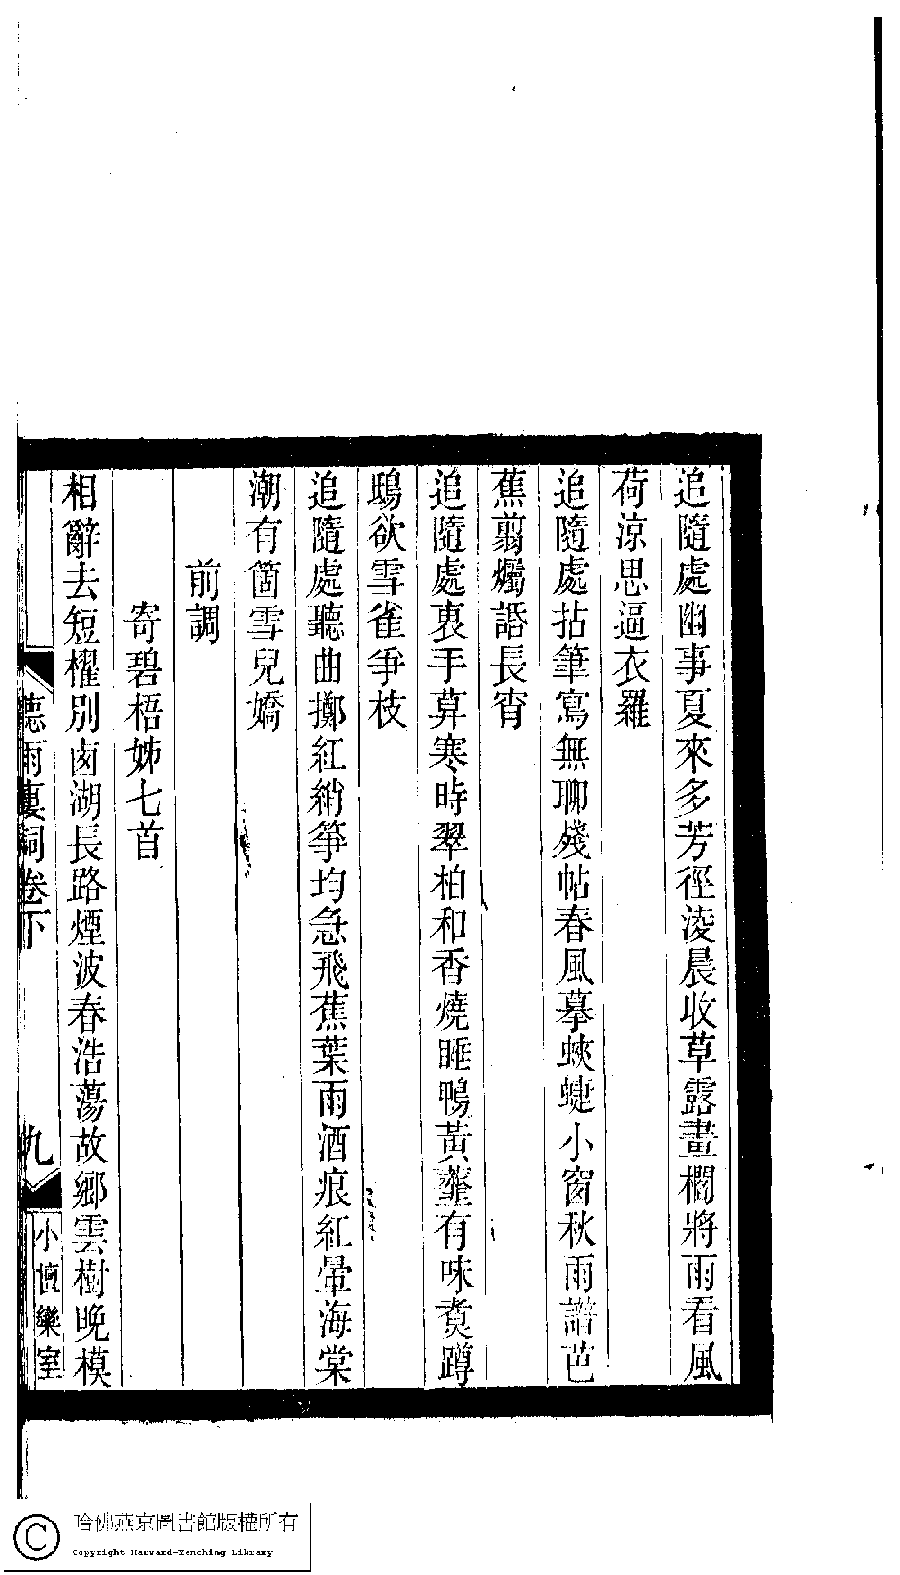 追隨處幽事夏來多芳徑淩晨收草露畫欄將雨看風
荷涼思逼衣羅
追隨處拈筆寫無聊殘帖春風摹蛺蜨小窗秋雨譜芭
蕉翦燭話長宵
追隨處裛手算寒時翠柏和香燒睡鴨黃虀有味煑蹲
鴟欲雪雀爭枝
追隨處聽曲擲紅綃箏均急飛蕉葉雨酒痕紅暈海棠
潮有箇雪兒嬌
前調
寄碧梧姊七首
相辭去短櫂別鹵湖長路煙波春浩蕩故鄉雲樹晚模
聽雨裏詞卷下
九
小檀欒室
哈佛燕京圖書館版權所有
Copyright Harvard-Yenching Library